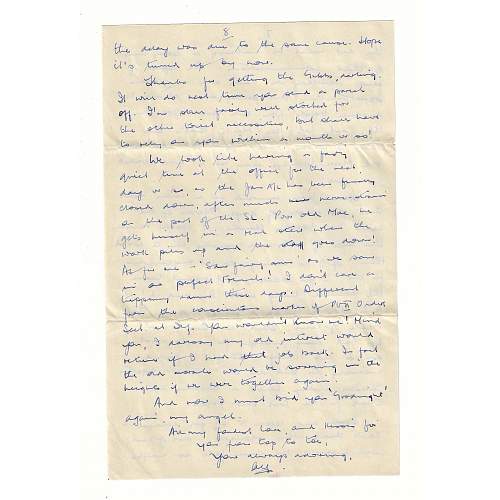 8.
the delay was due to the same cause. Hope
it's turned up by now.
Thanks for getting the Gibbs, darling.
It will do next time you send a parcel
off. I'm still fairly well stocked for
the other toilet necessities, but shall have
to rely on you within a month or so!
We look like having a fairly
quiet time at the office for the next
day or so, as the Jan A/c has been finally
closed down, after much nerve-strain
on the part of the S.L. Poor old Mac, he
gets himself in a real stew when the
work piles up and the staff goes down!
As for me - 'San fairy ann' as we say
in our perfect French! I don't care a
tipping damn these days. Different
from the conscientious worker of
Sect. at Dep. You wouldn't know me! Mind
you, I daresay my old interest would
return if I had that job back. In fact
the old morale would be soaring in the
heights if we were together again.
And now I must bid you 'Goodnight'
again, my angel.
All my fondest love, and kisses for
you from top to toe,
Your always adoring,